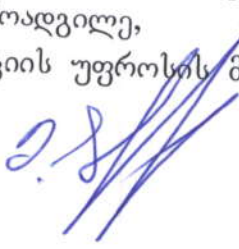 ოადგილე,
იის უფროსის მ